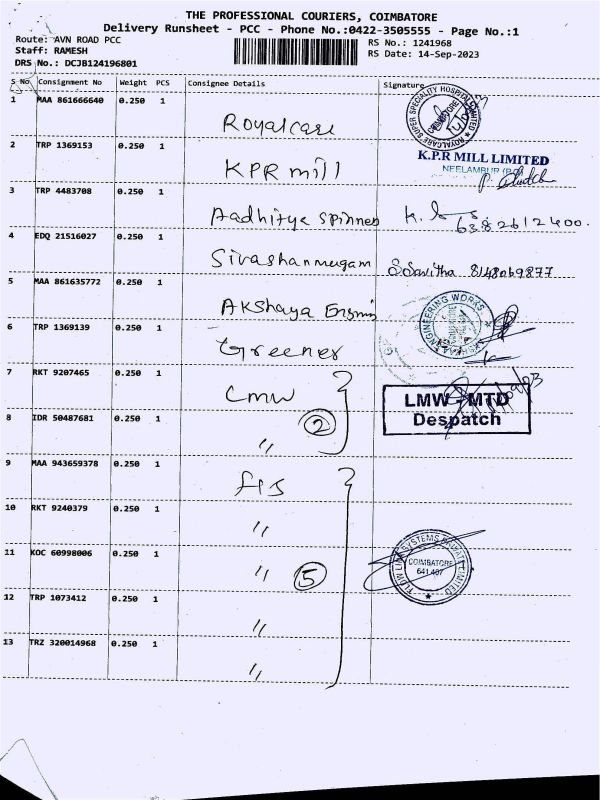 THE PROFESSIONAL COURIERS, COIMBATORE
Delivery Runsheet - PCC - Phone No.:0422-3505555 - Page No.:1
Route: AVN ROAD PCC
RS No.: 1241968
Staff: RAMESH
RS Date: 14-Sep-2023
DRS No.: DCJB124196801
S No Consignment No Weight PCS Consignee Details Signature
1 MAA 861666640 0.250 1 Royalcare
ROYALCARE SUPER SPECIALITY HOSPITAL LIMITED COIMBATORE
2 TRP 1369153 0.250 1 KPR mill
K.P.R MILL LIMITED
NEELAMBUR (PO)
3 TRP 4483708 0.250 1 Aadhitya spinners
6382612400.
4 EDQ 21516027 0.250 1 Sivashanmugam S.Savitha 8148069877
5 MAA 861635772 0.250 1 Akshaya
ENGINEERING WORKS
6 TRP 1369139 0.250 1 Greener
7 RKT 9207465 0.250 1 LMW
LMW - MTD
Despatch
8 IDR 50487681 0.250 1 〃 2
9 MAA 943659378 0.250 1 FLS
10 RKT 9240379 0.250 1 〃
11 KOC 60998006 0.250 1 〃 5
FLOW LINK SYSTEMS PRIVATE LIMITED
COIMBATORE
641 407
12 TRP 1073412 0.250 1 〃
13 TRZ 320014968 0.250 1 〃